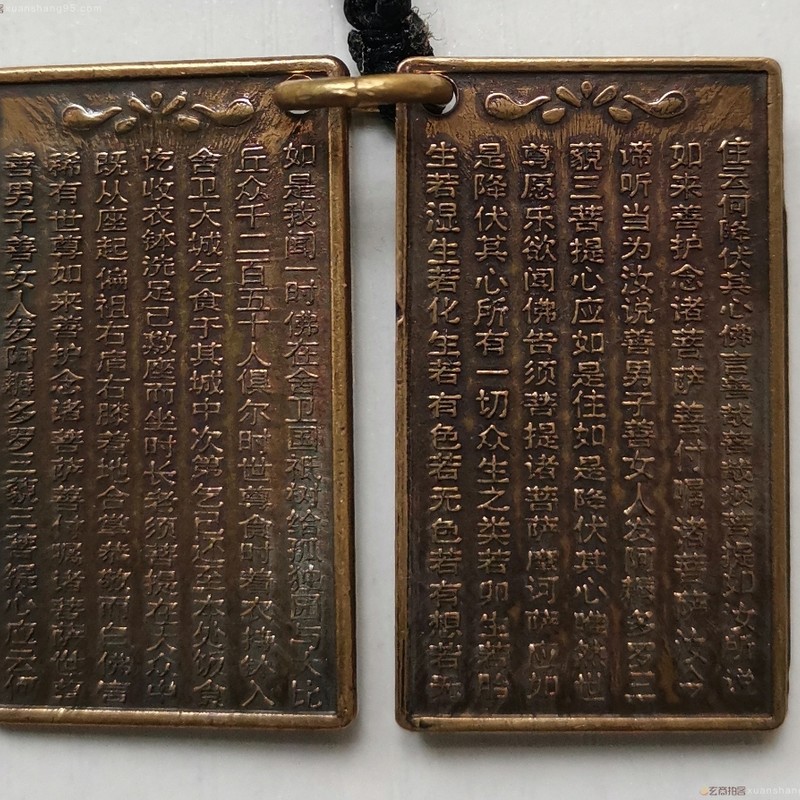 xuanshang95.com
如是我闻一时佛在舍卫国祇树给孤独园与大比
丘众千二百五十人俱尔时世尊食时着衣持钵入
舍卫大城乞食于其城中次第乞已还至本处饭食
讫收衣钵洗足已敷座而坐时长老须菩提在大众中
既从座起偏祖右肩右膝着地合掌恭敬而白佛言
稀有世尊如来善护念诸菩萨善付嘱诸菩萨世尊
善男子善女人发阿耨多罗三藐三菩提心应云何
住云何降伏其心佛言善哉善哉须菩提如汝所说
如来善护念诸菩萨善付嘱诸菩萨汝今
谛听当为汝说善男子善女人发阿耨多罗三
藐三菩提心应如是住如是降伏其心唯然世
尊愿乐欲闻佛告须菩提诸菩萨摩诃萨应如
是降伏其心所有一切众生之类若卵生若胎
生若湿生若化生若有色若无色若有想若无
玄商拍客 xuanshang